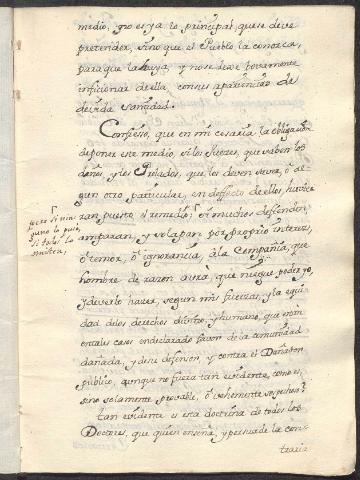 medio, y no es ya lo principal, que se deve
pretender, sino que el Pueblo la conozca,
para que la huya, y no se deve torvamente
inficionar de ella, con sus apariencias de
devida Santidad.
Confiesso, que en mi cesaria la obligacion
de poner este medio, si los Juezes, que saben los
daños, y los Prelados, que los deven saver, ò al-
gun otro particular, en deffecto de ellos, huvie-
ran puesto el remedio;
pero si nin-
guno lo pus.,
si todos lo
omiten,
si muchos defienden,
amparan, y solapan por proprio interes,
ò temor, ò ignorancia, à la Compañia, que
hombre de razon avrà, que niegue poder yo,
y deverlo hazer, segun mis fuerzas, y la equi-
dad de los derechos divino, y humano, que nom
en tales casos en declarado favor de la comunidad
dañada, y deve defension, y contra el Dañador
publico, aunque no fuera tan evidente, como es,
sino solamente provable, ò vehemente sospechoso?
tan evidente es esta doctrina de todos los
Doctores, que quien enseña, y persuade la con-
traria